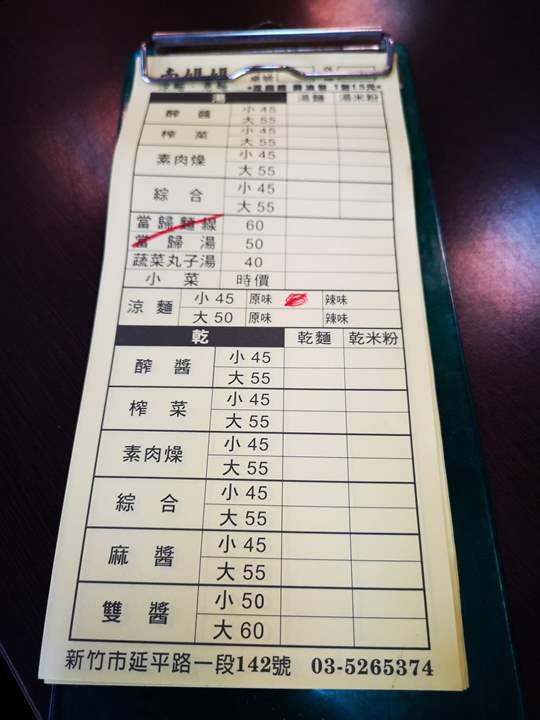 湯 湯麵 湯米粉
醡醬 小 45
大 55
榨菜 小 45
大 55
素肉燥 小 45
大 55
綜合 小 45
大 55
當歸麵線 60
當歸湯 50
蔬菜丸子湯 40
小菜 時價
涼麵 小 45 原味 辣味
大 50 原味 辣味
乾 乾麵 乾米粉
醡醬 小 45
大 55
榨菜 小 45
大 55
素肉燥 小 45
大 55
綜合 小 45
大 55
麻醬 小 45
大 55
雙醬 小 50
大 60
新竹市延平路一段142號 03-5265374